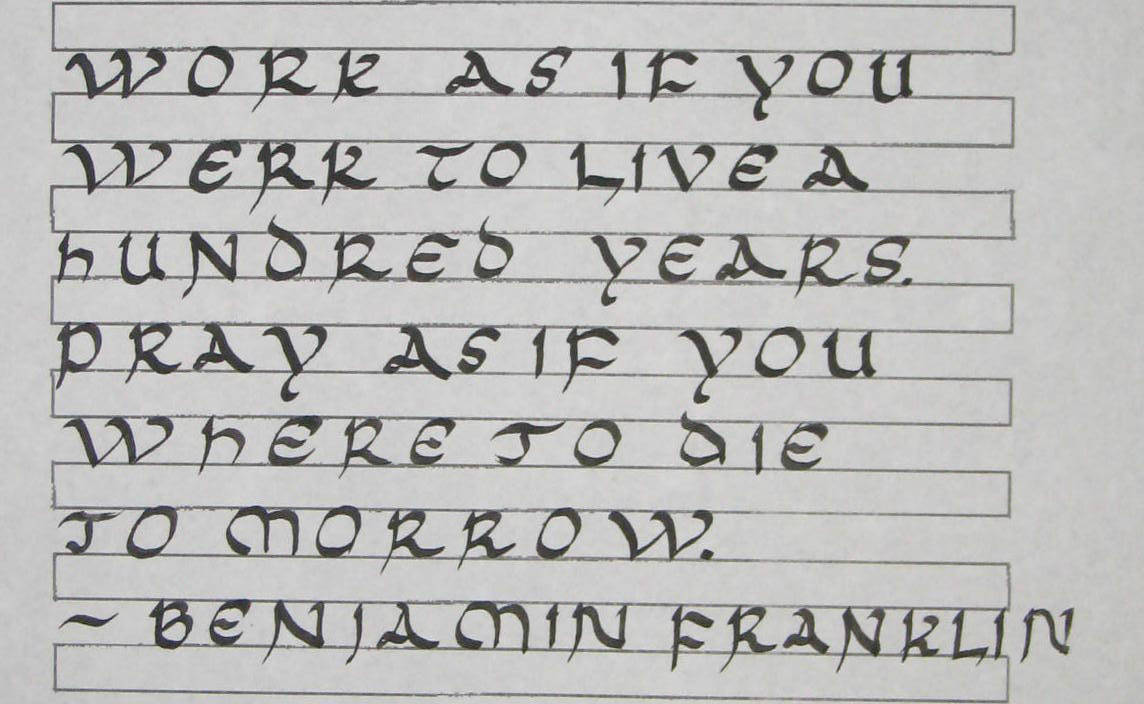 WORK AS IF YOU
WERK TO LIVE A
hUNDRED YEARS.
PRAY AS IF YOU
WhERE TO DIE
TO MORROW.
~ BENJAMIN FRANKLIN